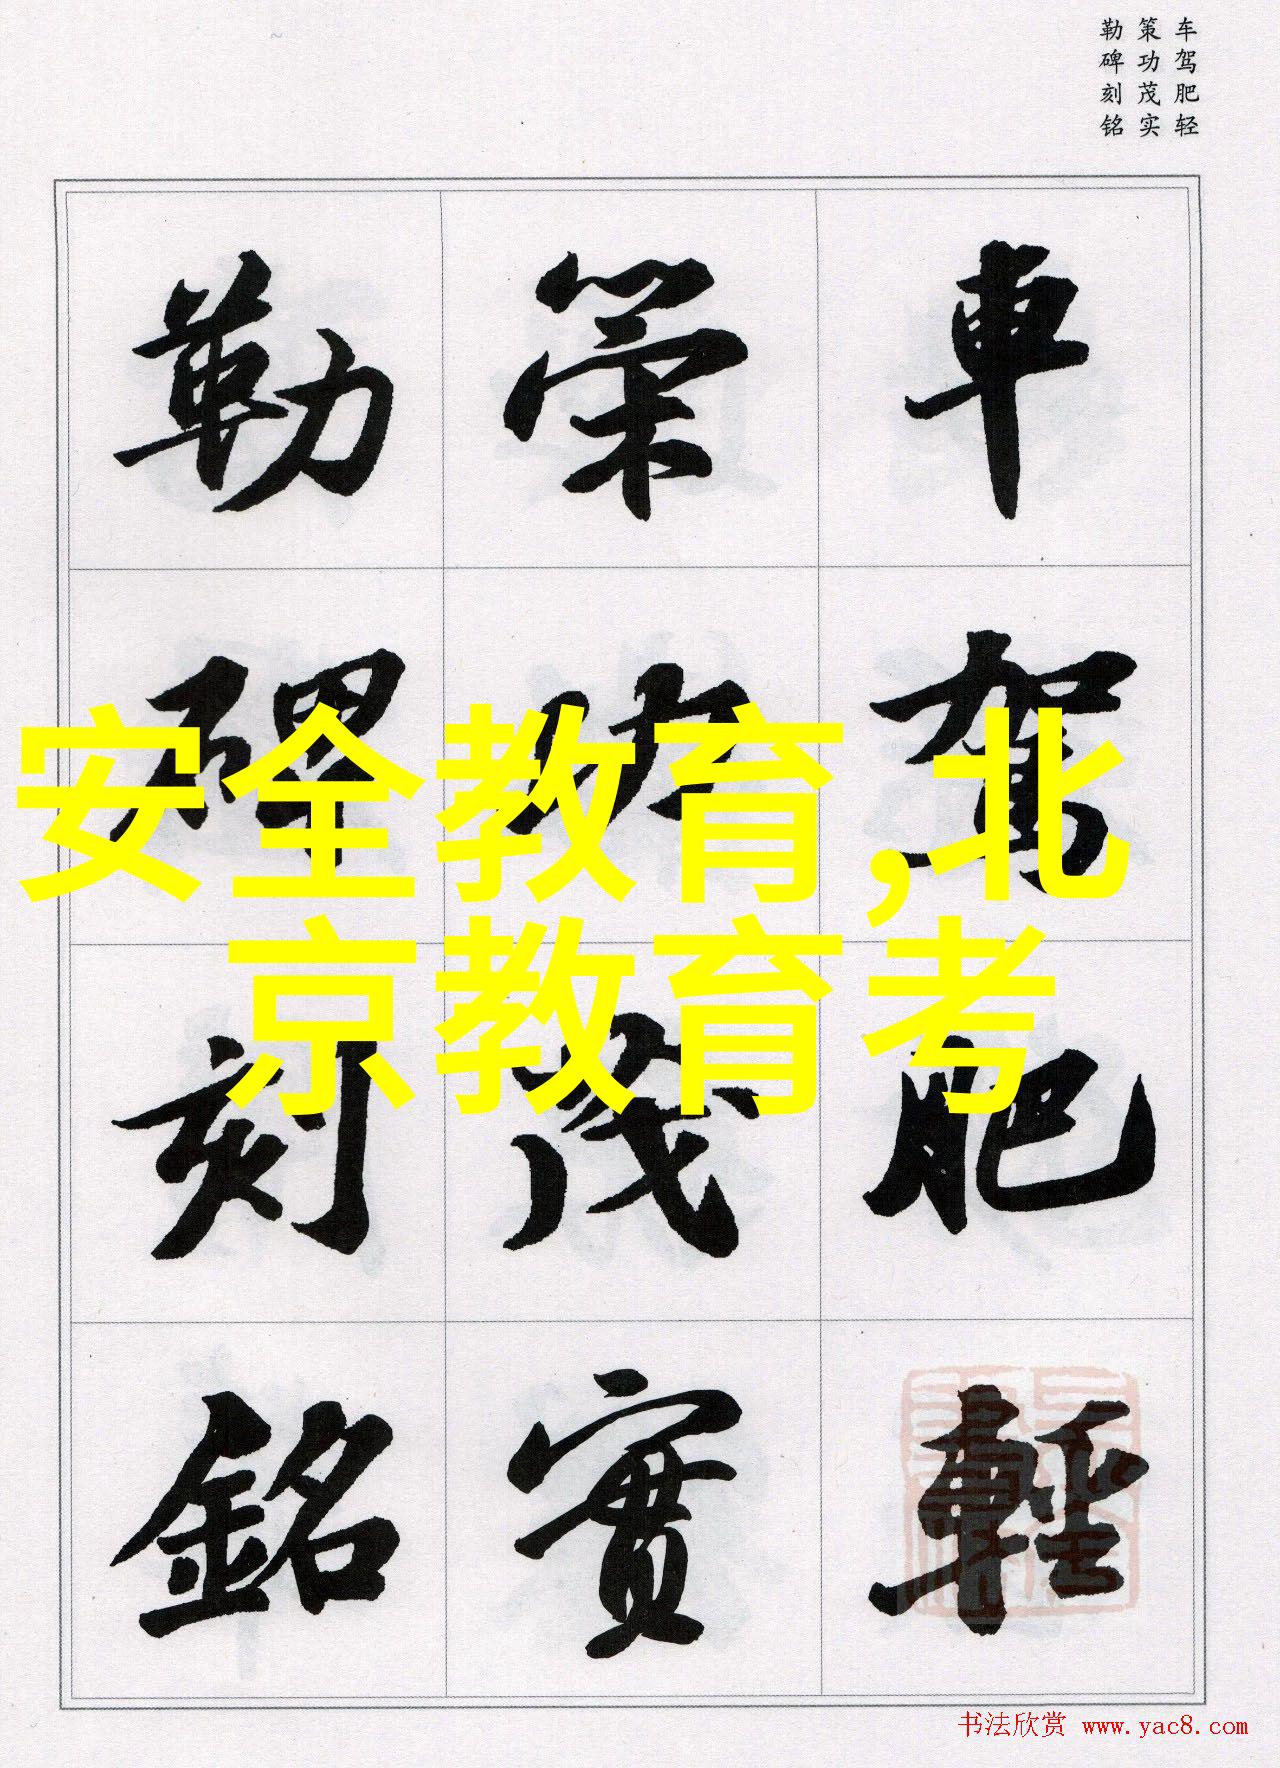 车驾肥轻
策功茂实
勒碑刻铭
車駕肥輕
策功茂實
勒碑刻銘
安全教育,北
京教育考
书法欣赏 www.yac8.com